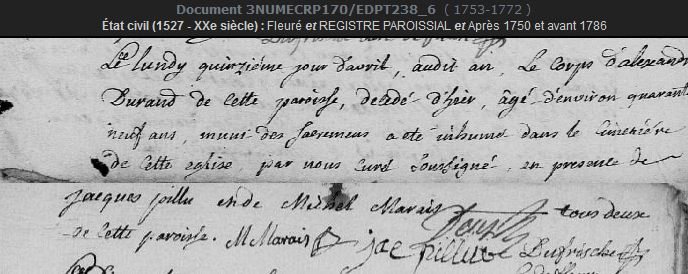 Document 3NUMECRP170/EDPT238_6 ( 1753-1772 )
État civil (1527 - XXe siècle) : Fleuré et REGISTRE PAROISSIAL et Après 1750 et avant 1786
Le lundy quinziéme jour d'avril, audit an, Le corps d'alexandre
Durand de cette paroisse, decedé d'hier, âgé d'environ quarante
neuf ans, muni des sacremens a eté inhumé dans le cimetiére
de cette eglise, par nous curé soussigné, en presence de
jacques pillu et de Michel Marais tous deux
de cette paroisse. M Marais jac pillu Dufrische